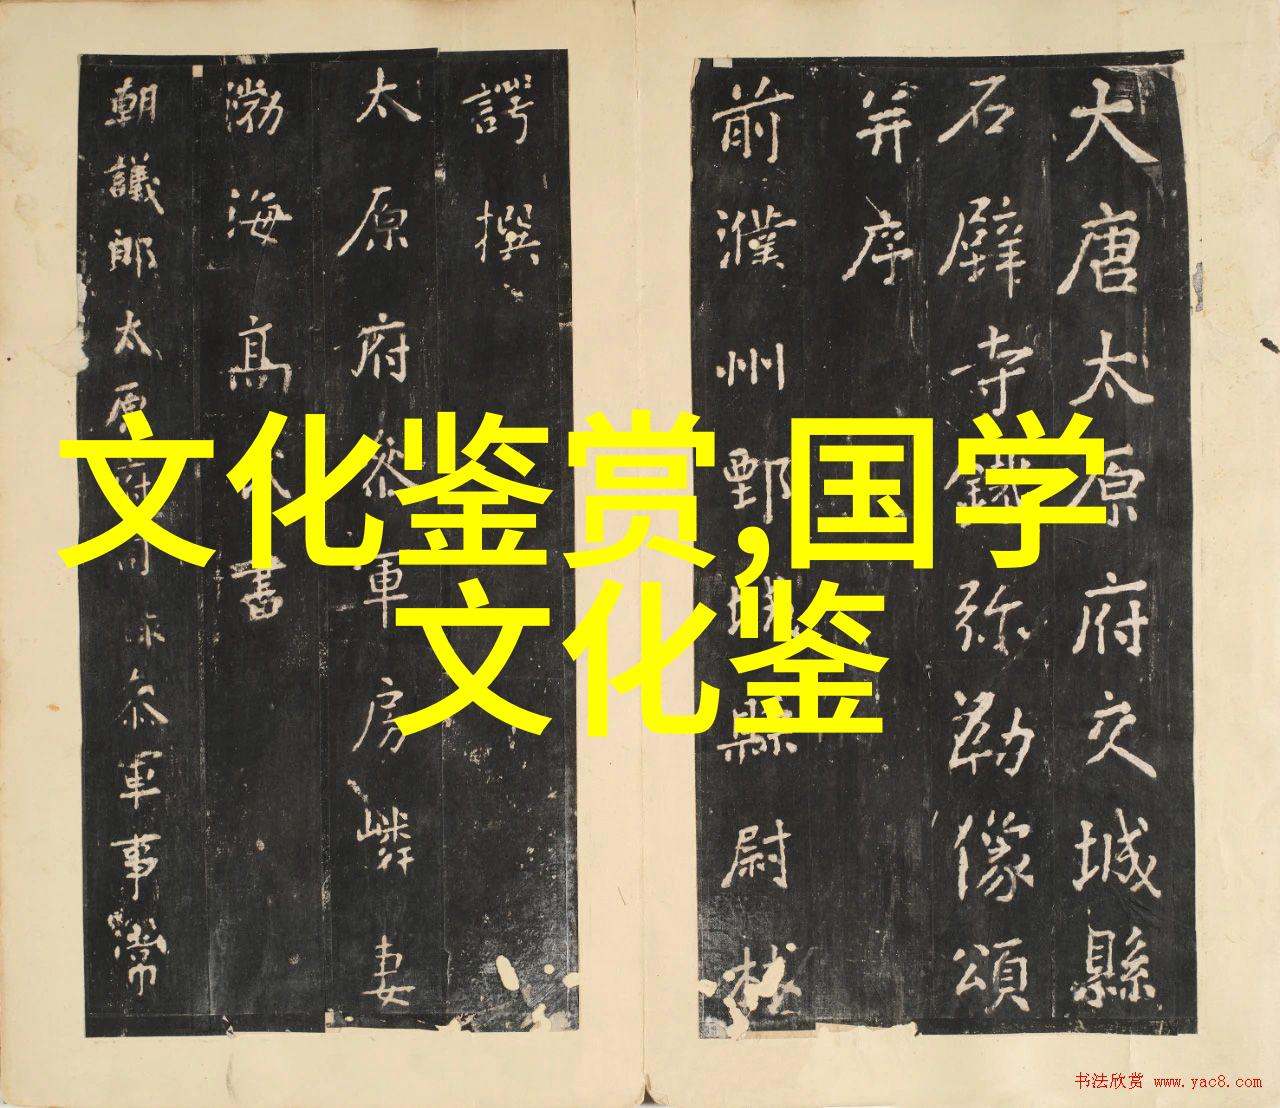 大唐太原府交城縣
石壁寺鐵弥勒像頌
并序
前濮州鄄城縣尉林
諤撰
太原府叅軍房嶙妻
渤海髙氏書
朝議郎太原府司叅軍事常
文化鉴赏,国学
文化鉴
书法欣赏 www.yac8.com